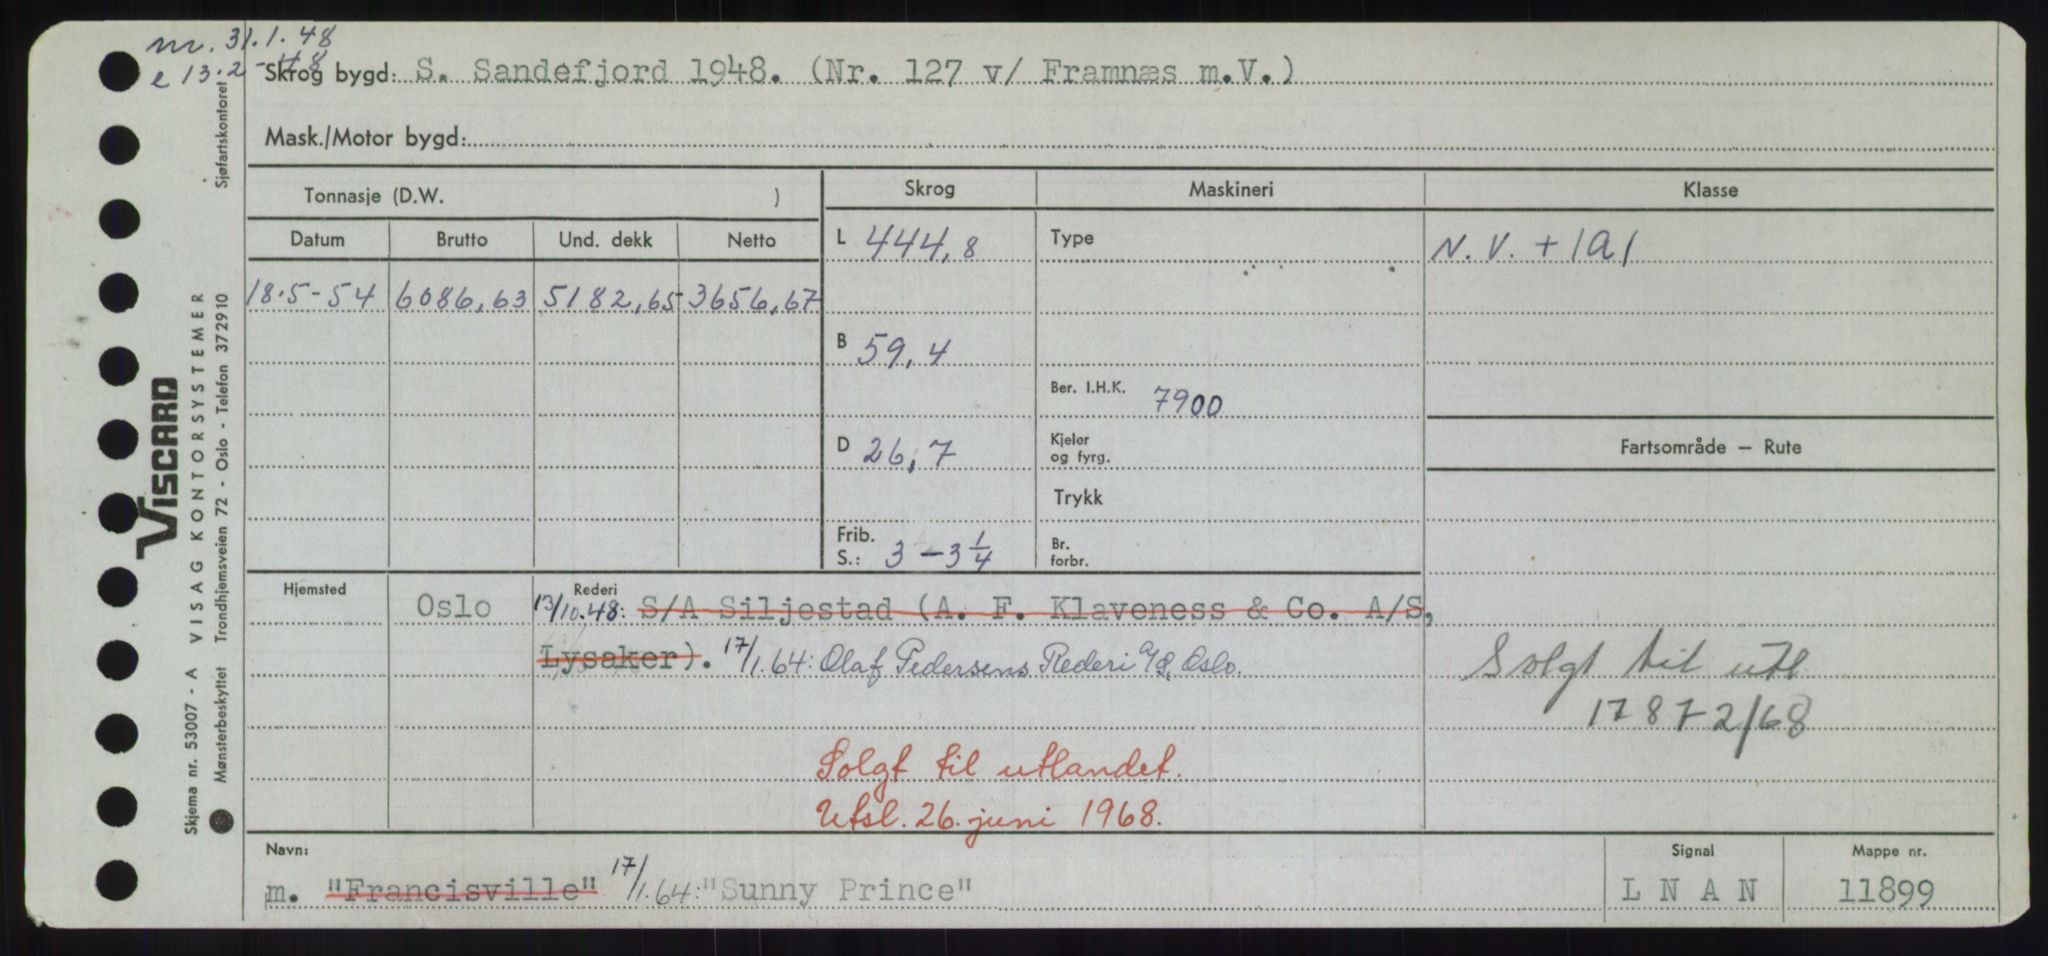 nr. 31.1.48
e 13.2-48
Skrog bygd: S. Sandefjord 1948. (Nr. 127 v/ Framnæs m.V.)
Mask./Motor bygd:
Tonnasje (D.W. )
Skrog
Maskineri
Klasse
Datum Brutto Und. dekk Netto
L 444,8
Type
N.V. + 1A1
18.5-54 6086,63 5182,65 3656,67
B 59,4
Ber. I.H.K. 7900
D 26,7
Kjeler
og fyrg.
Fartsområde — Rute
Trykk
Frib.
S.: 3 — 3 1/4
Br.
forbr.
Hjemsted Oslo
Rederi
13/10.48: S/A Siljestad (A. F. Klaveness & Co. A/S,
Lysaker). 17/1.64: Olaf Pedersens Rederi A/S, Oslo.
Solgt til utl
17872/68
Solgt til utlandet.
Utsl. 26. juni 1968.
Navn:
m. "Francisville" 17/1.64: "Sunny Prince"
Signal
L N A N
Mappe nr.
11899
VISCARD
Skjema nr. 53007 - A VISAG KONTORSYSTEMER
Mønsterbeskyttet Trondhjemsveien 72 - Oslo - Telefon 372910 Sjøfartskontoret